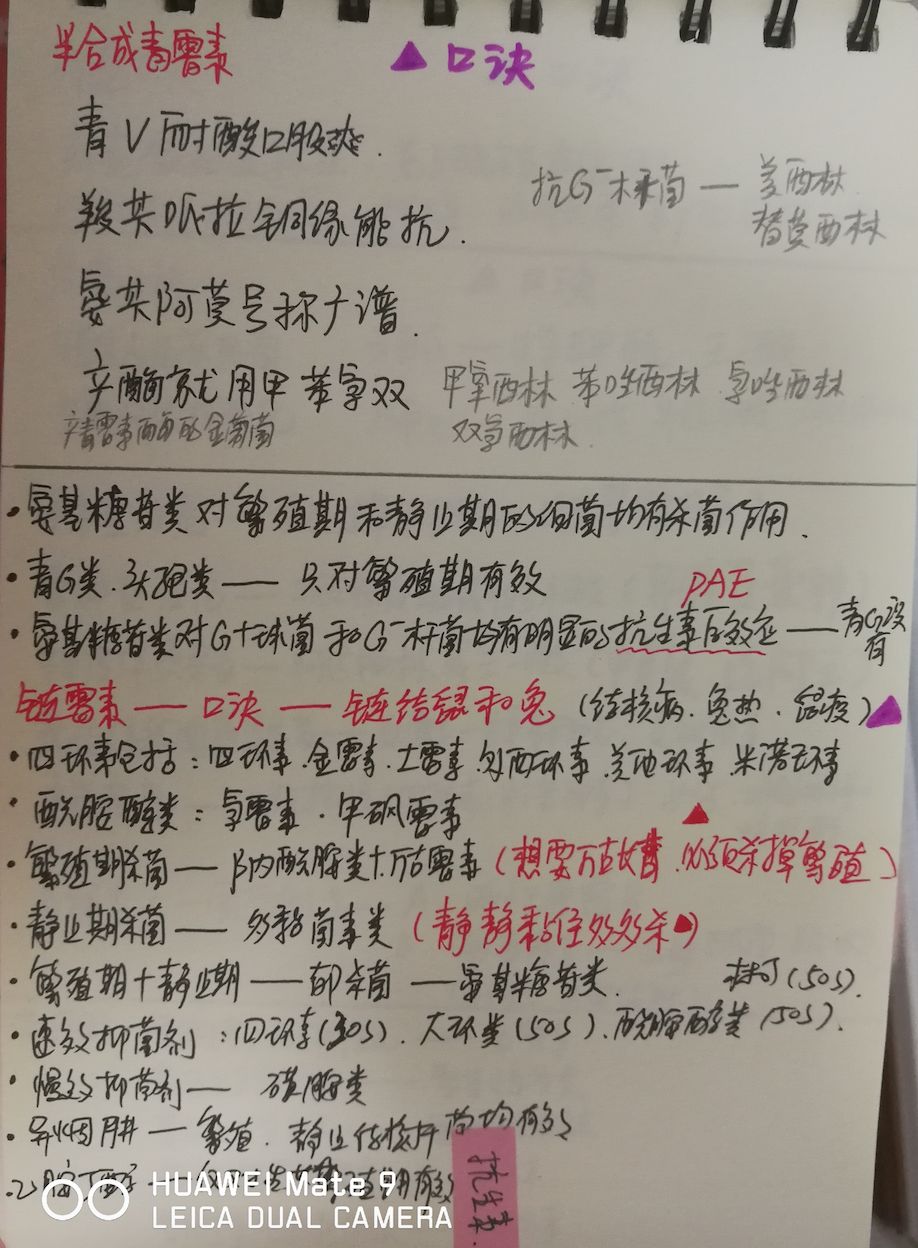 半合成青霉素
▲口诀
青V耐酸口服爽.
抗G⁻杆菌 — 美西林
替莫西林
羧苄哌拉铜绿能抗.
氨苄阿莫号称广谱.
辛酶就用甲苯氯双
甲氧西林 苯唑西林 氯唑西林
双氯西林.
青霉素酶的金葡菌
·氨基糖苷类对繁殖期和静止期的细菌均有杀菌作用.
·青G类.头孢类 —— 只对繁殖期有效
PAE
·氨基糖苷类对G+球菌和G⁻杆菌均有明显的抗生素后效应 —— 青G没有
链霉素 — 口诀 — 链结鼠和兔 (结核病.兔热.鼠疫)▲
·四环素包括:四环素.金霉素.土霉素.多西环素.美他环素.米诺环素
·酰胺醇类:氯霉素.甲砜霉素
·繁殖期杀菌 — β内酰胺类+万古霉素 (想要万古流青.必须杀掉繁殖)
·静止期杀菌 —— 多黏菌素类 (静静黏住多多杀)
·繁殖期+静止期 —— 都杀菌 — 氨基糖苷类.
林可(50S).
·速效抑菌剂:四环素(30S).大环类(50S).酰胺醇类(50S).
·慢效抑菌剂 — 磺胺类
·异烟肼 — 繁殖.静止结核杆菌均有效
·乙胺丁醇
期有效
抗生素.
HUAWEI Mate 9
LEICA DUAL CAMERA